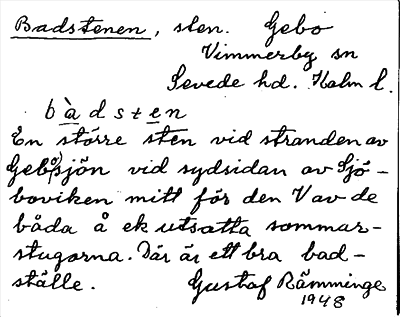 Badstenen, sten. Gebo
Vimmerby sn
Sevede hd. Kalm l.
bàdsten
En större sten vid stranden av
Gebosjön vid sydsidan av Sjö-
boviken mitt för den V av de
båda å ek utsatta sommar-
stugorna. Där är ett bra bad-
ställe. Gustaf Rämminge
1948